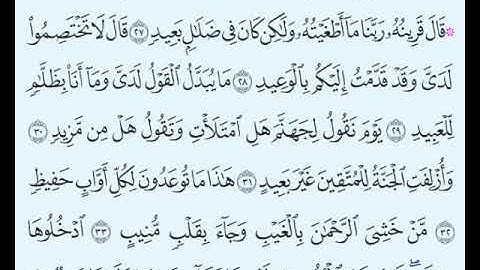 * قَالَ قَرِينُهُۥ رَبَّنَا مَآ أَطْغَيْتُهُۥ وَلَٰكِن كَانَ فِى ضَلَٰلٍۭ بَعِيدٍ ٢٧ قَالَ لَا تَخْتَصِمُوا۟
لَدَىَّ وَقَدْ قَدَّمْتُ إِلَيْكُم بِٱلْوَعِيدِ ٢٨ مَا يُبَدَّلُ ٱلْقَوْلُ لَدَىَّ وَمَآ أَنَا۠ بِظَلَّٰمٍ
لِّلْعَبِيدِ ٢٩ يَوْمَ نَقُولُ لِجَهَنَّمَ هَلِ ٱمْتَلَأْتِ وَتَقُولُ هَلْ مِن مَّزِيدٍ ٣٠
وَأُزْلِفَتِ ٱلْجَنَّةُ لِلْمُتَّقِينَ غَيْرَ بَعِيدٍ ٣١ هَٰذَا مَا تُوعَدُونَ لِكُلِّ أَوَّابٍ حَفِيظٍ
٣٢ مَّنْ خَشِىَ ٱلرَّحْمَٰنَ بِٱلْغَيْبِ وَجَآءَ بِقَلْبٍ مُّنِيبٍ ٣٣ ٱدْخُلُوهَا